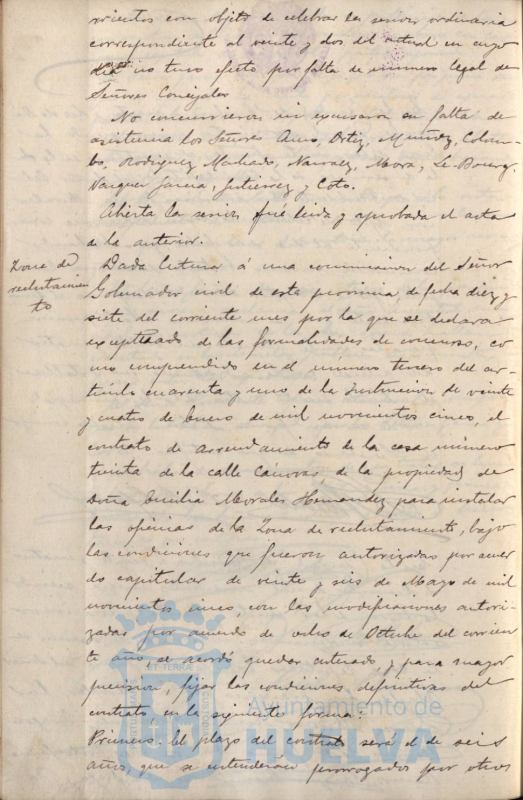 mientos con objeto de celebrar la sesion ordinaria
correspondiente al veinte y dos del actual en cuyo
dia no tuvo efecto por falta de número legal de
Señores Concejales
No concurrieron ni excusaron su falta de
asistencia los Señores Ortiz, Muñoz, Colom-
bo, Rodriguez Machado, Narvaez, Mora, Le-Bourg,
Vazquez Garcia, Gutierrez y Coto.
Abierta la sesion fué leida y aprobada el acta
de la anterior.
Zona de
reclutamien
to
Dada lectura á una comunicacion del Señor
Gobernador civil de esta provincia, de fecha diez y
siete del corriente mes por la que se declara
exceptuado de las formalidades de concurso, co
mo comprendido en el número tercero del ar-
tículo cuarenta y uno de la Instruccion de veinte
y cuatro de Enero de mil novecientos cinco, el
contrato de arrendamiento de la casa número
treinta de la calle Cánovas, de la propiedad de
Doña Emilia Morales Hernandez para instalar
las oficinas de la Zona de reclutamiento, bajo
las condiciones que fueron autorizadas por acuer
do capitular de veinte y seis de Mayo de mil
novecientos cinco, con las modificaciones autori-
zadas por acuerdo de ocho de Octubre del corrien
te año se acordó quedar enterado, y para mayor
precision, fijar las condiciones definitivas del
contrato, en la siguiente forma:
Primero. El plazo del contrato será el de seis
años, que se entenderán prorrogados por otros
Ayuntamiento de
HUELVA